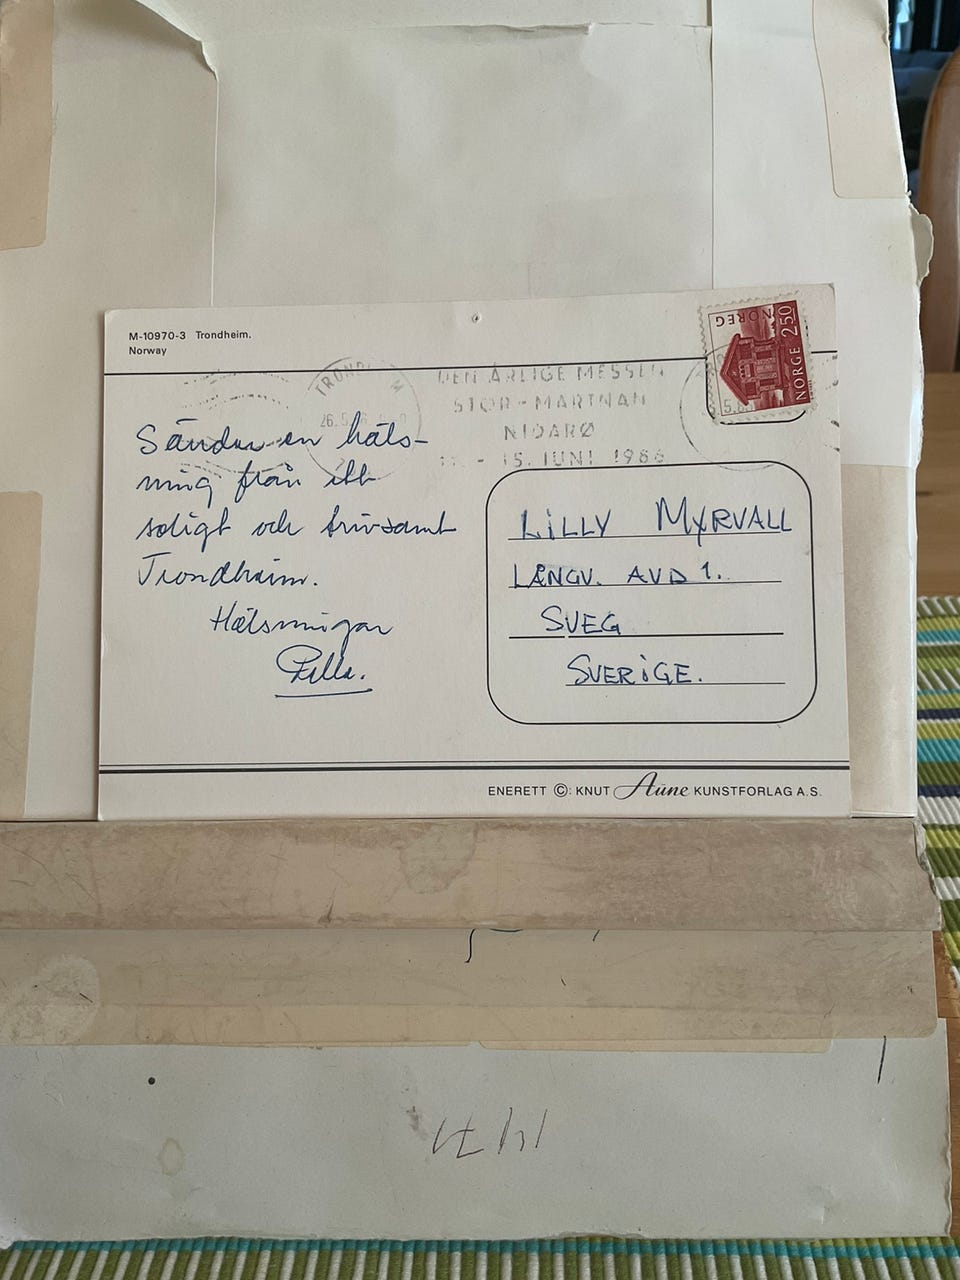 M-10970-3 Trondheim.
Norway
NOREG
NORGE 250
DEN ÅRLIGE MESSEN
STOR-MARTNAN
NIDARØ
- 15. JUNI 1986
Sänder en häls-
ning från ett
soligt och trivsamt
Trondheim.
Hälsningar
LiLLY MYRVALL
LÅNGV. AVD 1.
SVEG
SVERiGE.
ENERETT ©: KNUT Aüne KUNSTFORLAG A.S.